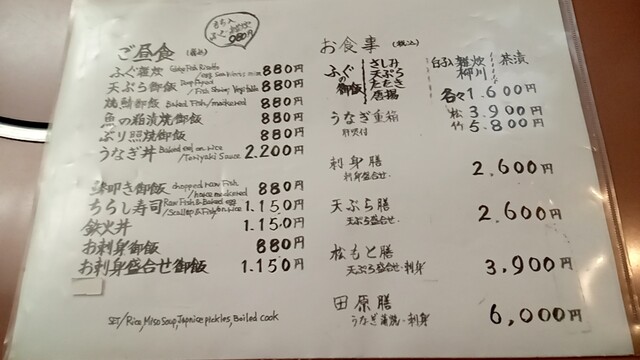 もち入
ふぐ雑炊
080円
ご昼食 (税込)
ふぐ雑炊 Globefish Risotto 880円
天ぷら御飯 Deep Fried /Fish Shrimp Vegetable 880円
焼鯖御飯 Baked Fish/mackerel 880円
魚の粕漬焼御飯 880円
ぶり照焼御飯 880円
うなぎ丼 Baked eel on rice /Teriyaki Sauce 2.200円
叩き御飯 chopped raw Fish /horse mackerel 880円
ちらし寿司 Raw Fish & Baked egg /Scallop & Fish on rice 1.150円
鉄火丼 1.150円
お刺身御飯 880円
お刺身盛合せ御飯 1.150円
SET/Rice, Miso Soup, Japnice pickles, Boiled cook
お食事 (税込)
ふぐの御飯 さしみ 天ぷら たたき 唐揚
白子入 雑炊 柳川 茶漬
各々 1.600円
うなぎ重箱 肝吸付
松 3.900円
竹 5.800円
刺身膳 2,600円
刺身盛合せ.
天ぷら膳 2,600円
天ぷら盛合せ.
松もと膳 3,900円
天ぷら盛合せ・刺身
田原膳 6,000円
うなぎ蒲焼・刺身